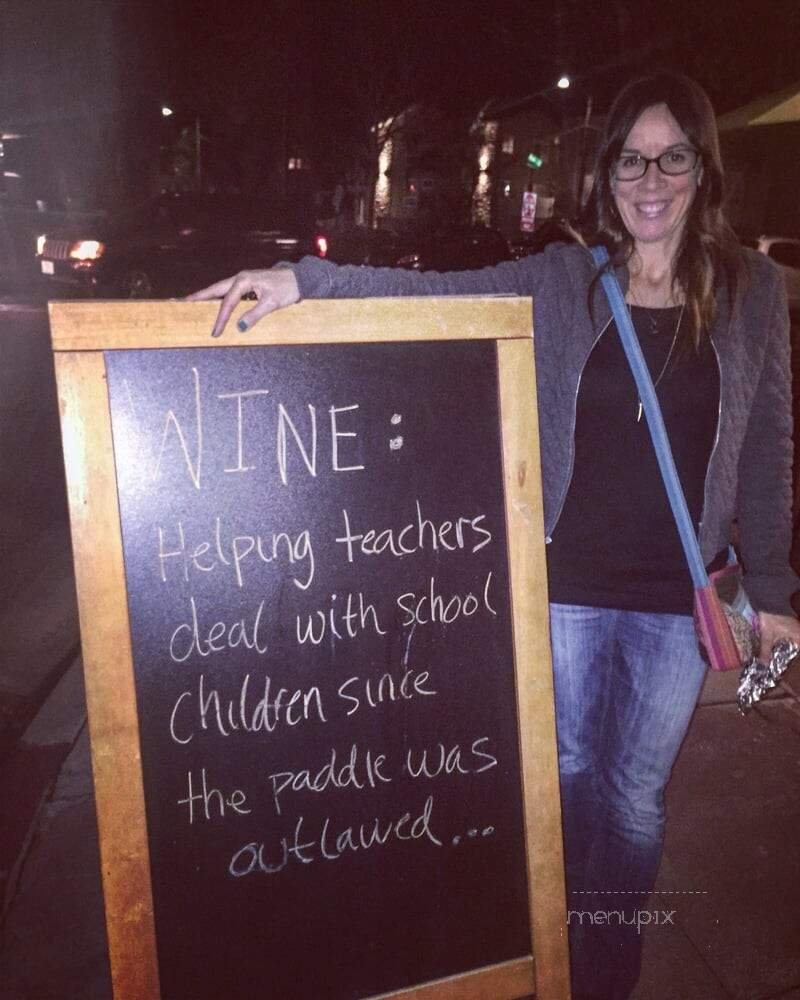 WINE:
Helping teachers
deal with school
children since
the paddle was
outlawed...
menupix